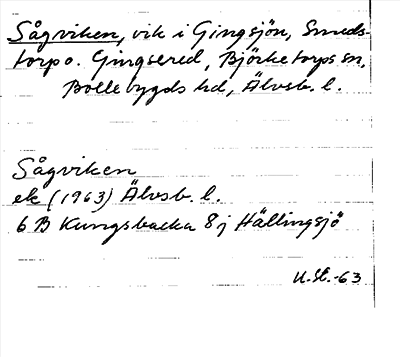 Sågviken, vik i Gingsjön, Smeds-
torp o. Gingsered, Björketorps sn,
Bollebygds hd, Älvsb. l.
Sågviken
ek (1963) Älvsb. l.
6 B Kungsbacka 8 j Hällingsjö
U.St.-63